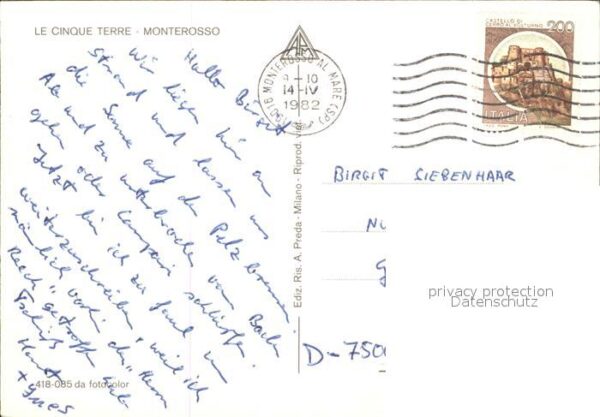 LE CINQUE TERRE - MONTEROSSO
Hallo Birgit
Wir liegen hier am
Strand und lassen uns
die Sonne auf den Pelz brennen.
Ab und zu unterbrochen vom Baden
gehen oder Campari schlürfen.
Jetzt bin ich zu faul um
weiterzuschreiben, weil ich
nämlich vorhin den Herrn
getroffen
Tschüß
+ Ynes
418-085 da fotocolor
Ediz. Ris. A. Preda - Milano - Riprod. viet.
19016 MONTEROSSO AL MARE (SP)
-10
14-IV
1982
CASTELLO DI
CERRO AL VOLTURNO
200
ITALIA
BIRGIT SIEBENHAAR
D-750
privacy protection
Datenschutz